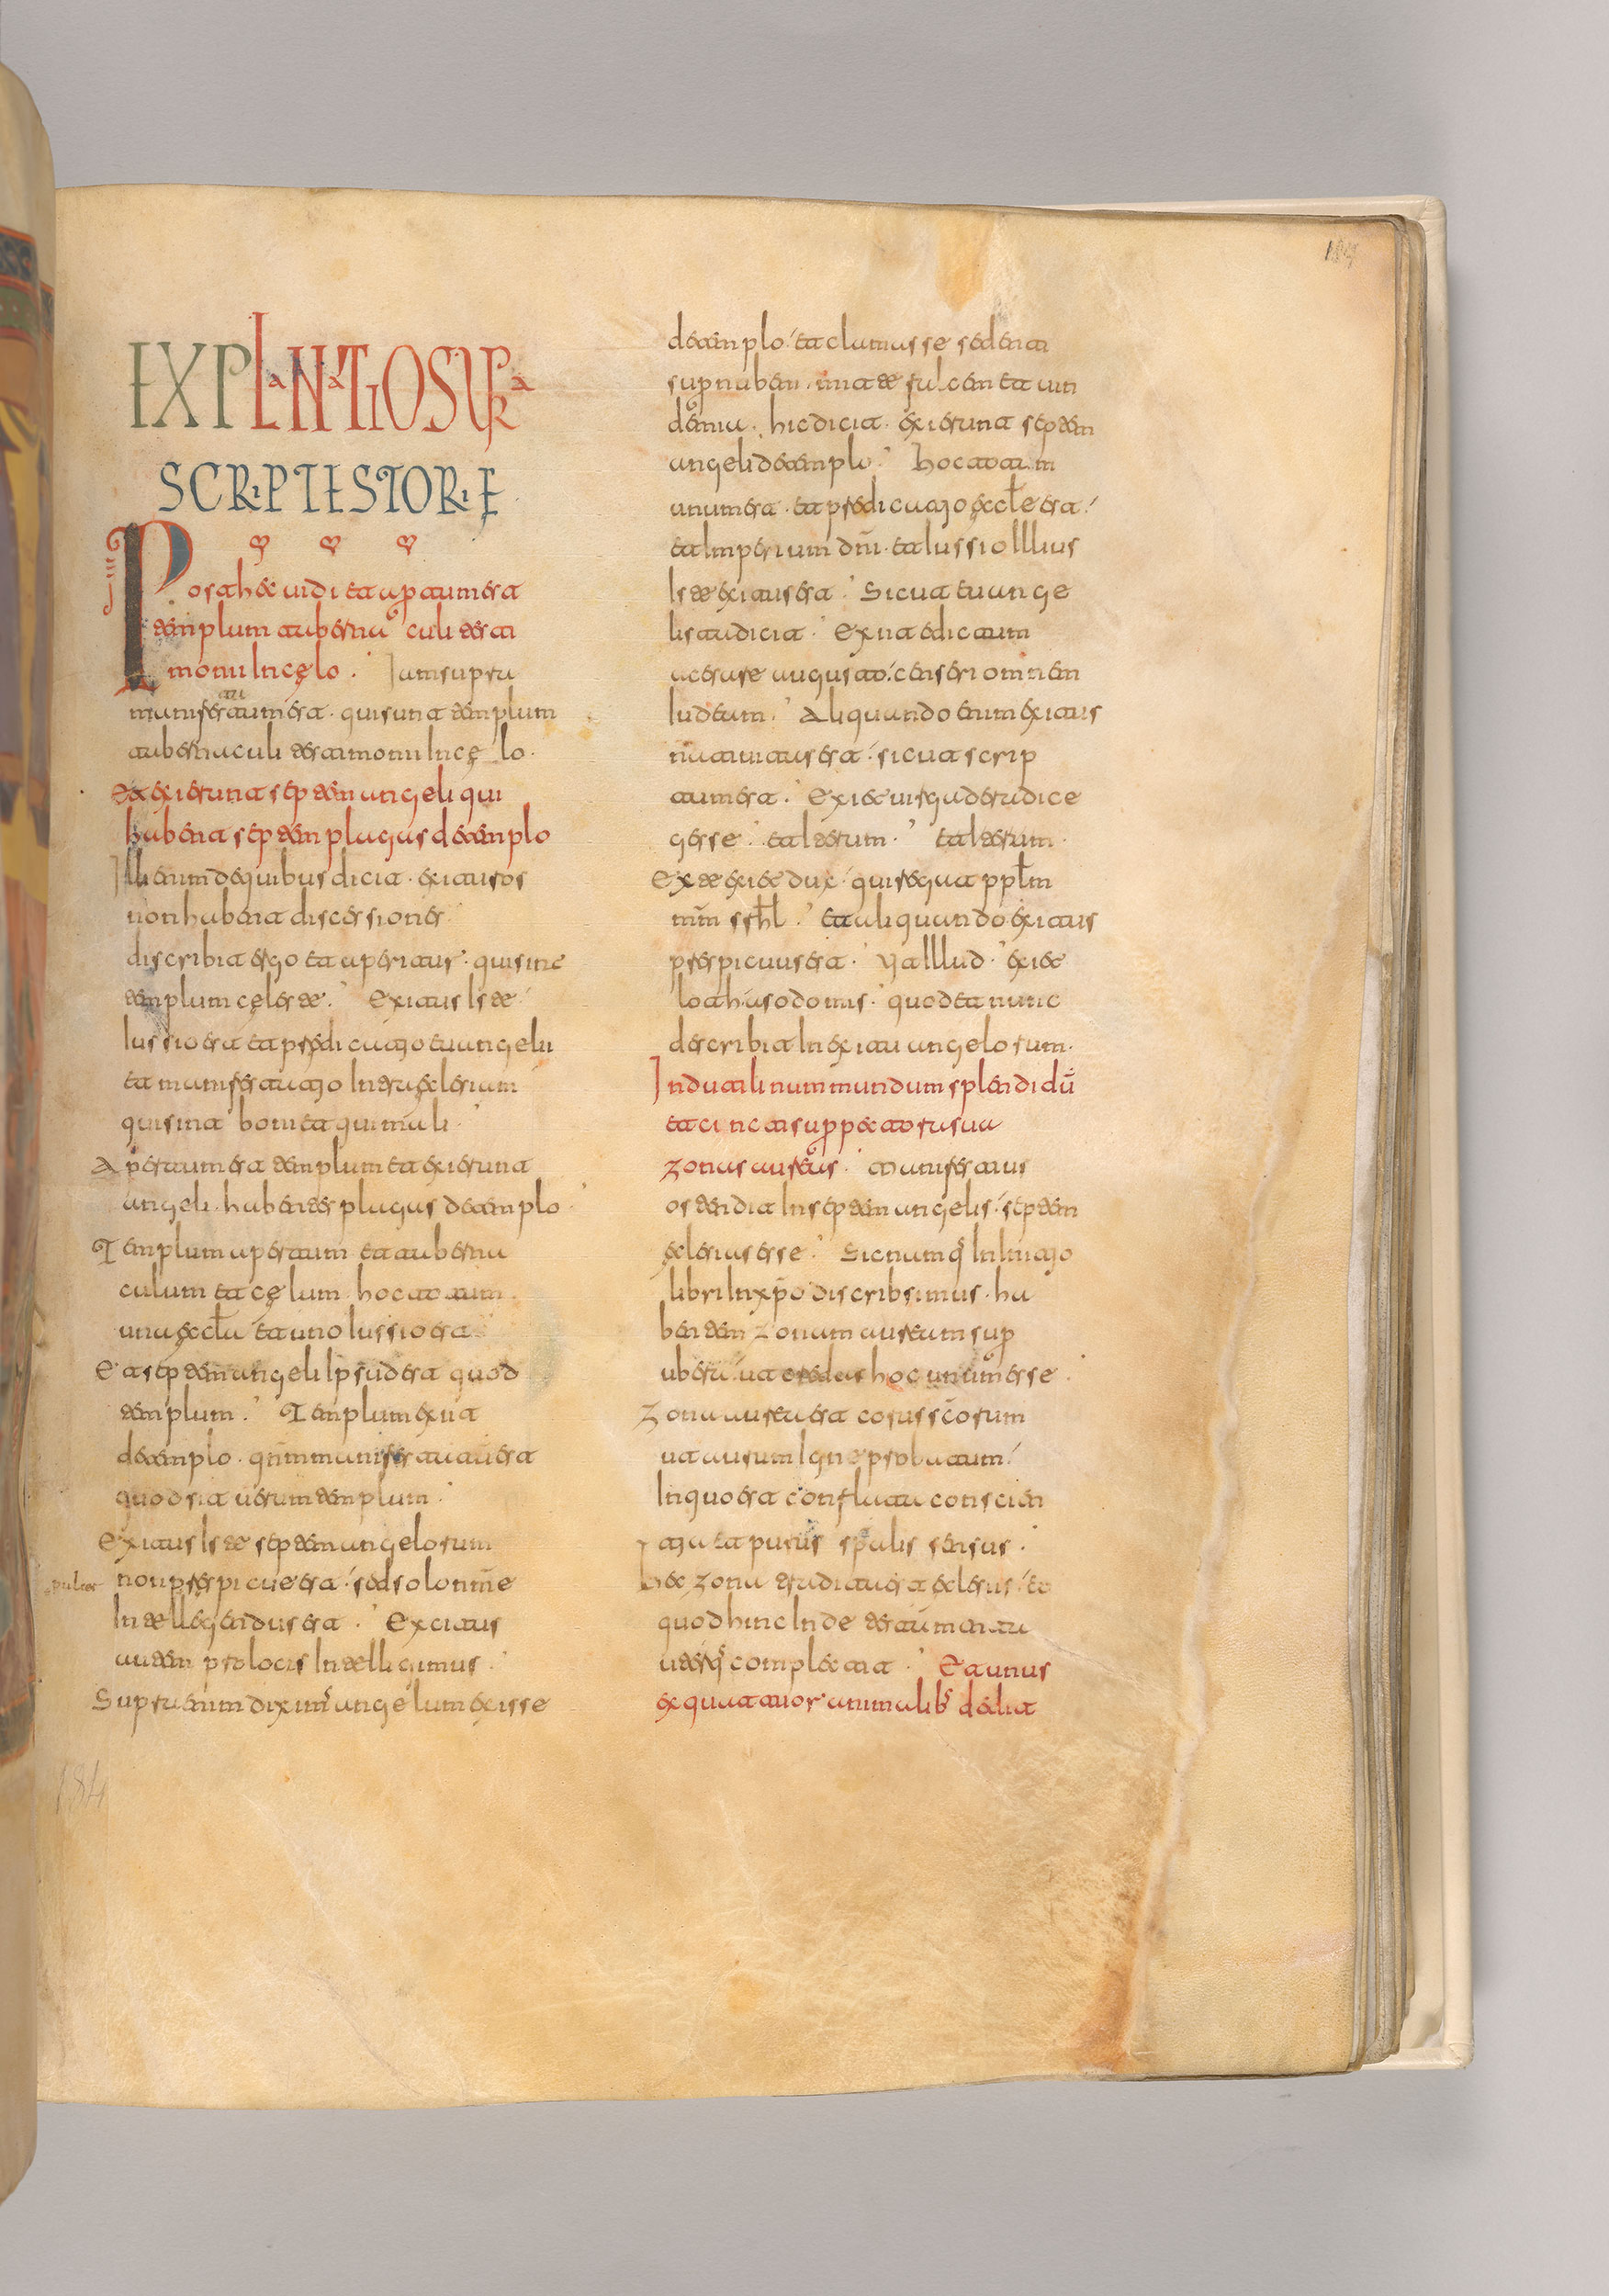 EXPLaNaTIO SUPRa
SCRIPTE STORIE
Post hec uidi et apertum est
templum tabernaculi testi
moni In celo. Iam supra
manifestatum est. qui sunt templum
tabernaculi testimoni In celo.
Et exierunt septem angeli qui
habent septem plagas de templo
Illi enim de quibus dicit. exituros
non habent discessiones
discribit ergo et aperitur. qui sint
templum celeste. Exitus Iste
Iussio est et predicatio euangelii
et manifestatio Inter eclesiam
qui sint boni et qui mali.
Apertum est templum et exierunt
angeli. habentes plagas de templo.
Templum apertum et taberna
culum et celum hoc totum
una eccła et uno Iussio est
Et septem angeli Ipsud est quod
templum. Templum exiit
de templo. qnm manifestata est
quod sit uerum templum.
Exitus Iste septem angelorum
non perspicue est. sed solomme
Intellegendus est. Exitus
autem pro locis Intelligimus.
Supra enim diximus angelum exisse
184
189
de templo. et clamasse sedenti
super nubem. mitte falcem et uin
demia. hic dicit. exierunt septem
angeli de templo. hoc totum
unum est. et predicatio eccłe est.
et Imperium dni. et Iussio Illius
Iste exitus est. Sicut euange
lista dicit. Exiit edictum
a cesare agusto. censeri omnem
Iudeam. Aliquando enim exitus
natiuitas est. sicut scrip
tum est. Exiet uirga de radice
gesse. et Iterum. et Iterum.
Ex te exiet dux. qui regat ppłm
mm srhł. et aliquando exitus
perspicuus est. ut Illud. exiet
loth a sodomis. quod et nunc
describit In exitu angelorum.
Induti linum mundum splendidū
et cincti super pectora sua
zonas aureas. Manifestius
ostendit In septem angelis. septem
eclesias esse. Sic namq In Initio
libri In xpo discribsimus. ha
bentem zonam auream super
ubera. ut credas hoc unum esse.
Zona aurea est corus scorum
ut aurum Igne probatum.
In quo est conflata conscien
tia et purus spalis sensus.
hec zona tradita est eclesiis. eo
quod hinc Inde testamenta
uteraq complectit. Et unus
ex quattuor animalibs dedit